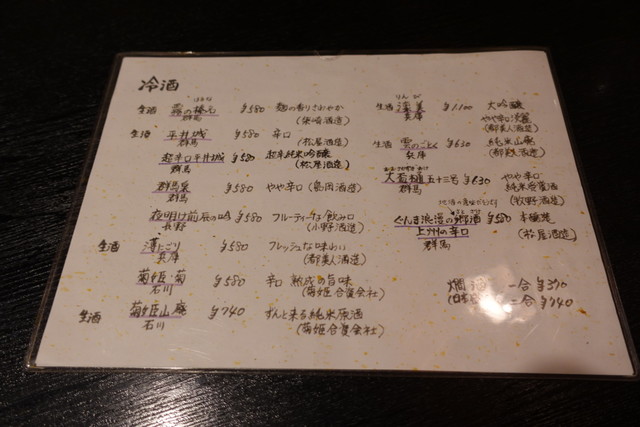 冷酒
はるな
生酒 霧の榛名 ¥580 麹の香りさわやか
群馬 (柴崎酒造)
生酒 平井城 ¥580 辛口
群馬 (松屋酒造)
超辛口平井城 ¥580 超辛純米吟醸
群馬 (松屋酒造)
群馬泉 ¥580 やや辛口 (島岡酒造)
群馬
夜明け前辰の吟 ¥580 フルーティーな飲み口
長野 (小野酒造)
生酒 薄にごり ¥580 フレッシュな味わい
兵庫 (都美人酒造)
菊姫・菊 ¥580 辛口 熟成の旨味
石川 (菊姫合資会社)
生酒 菊姫山廃 ¥740 ずんと来る純米原酒
石川 (菊姫合資会社)
りんび
生酒 凜美 ¥1,100 大吟醸
兵庫 やや辛口淡麗
(都美人酒造)
生酒 雲のごとく ¥630 純米山廃
兵庫 (都美人酒造)
大盃 五十三号 ¥630 やや辛口
群馬 純米原酒
(牧野酒造)
地酒の美味だょり
ぐんま浪漫の郷酒 ¥580 本醸造
上州の辛口 (松屋酒造)
群馬
燗酒 一合 ¥370
二合 ¥740